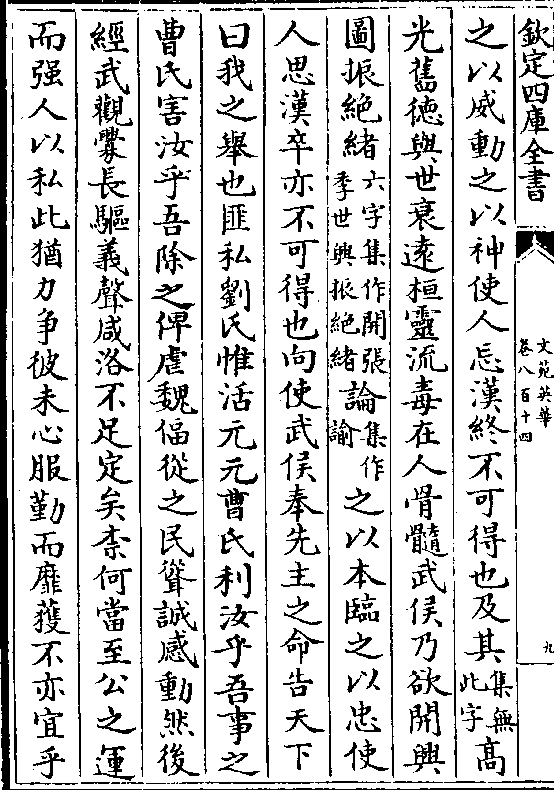 欽定四庫全書
文苑英華
卷八百十四
九
之以威動之以神使人忘漢終不可得也及其集無此字高
光舊徳與世衰逺桓靈流毒在人骨髓武侯乃欲開興
圖振絶緒六字集作開張季世興振絶緒論集作諭之以本臨之以忠使
人思漢卒亦不可得也向使武侯奉先主之命告天下
曰我之舉也匪私劉氏惟活元元曹氏利汝乎吾事之
曹氏害汝乎吾除之俾虐魏偪從之民聳誠感動然後
經武觀釁長驅義聲咸洛不足定矣柰何當至公之運
而强人以私此猶力争彼未心服勤而靡獲不亦宜乎